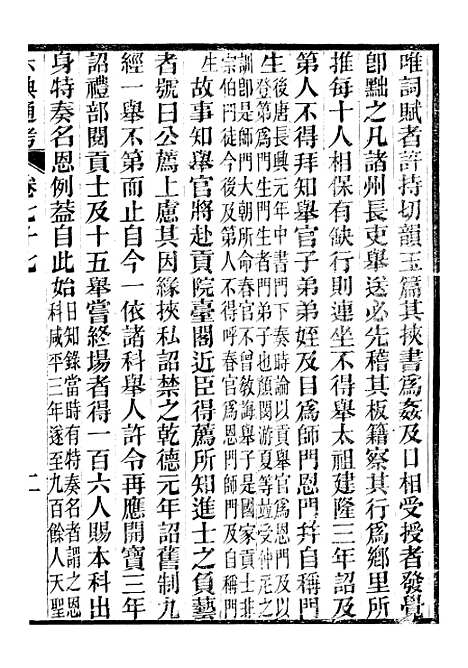 唯詞賦者許持切韻玉篇其挾書爲姦及口相受授者發覺
卽黜之凡諸州長吏舉送必先稽其板籍察其行爲鄉里所
推每十人相保有缺行則連坐不得舉太祖建隆三年詔及
第人不得拜知舉官子弟弟姪及目爲師門恩門幷自稱門
生
後唐長興元年中書門下奏時論以貢舉官爲恩門及以
登第爲門生門生者門弟子也顏閔游夏等竝受仲尼之
訓卽是師門大朝所命春官不曾教誨舉子是國家貢士非
宗伯門徒今後及第人不得呼春官爲恩門師門及自稱門
生
故事知舉官將赴貢院臺閣近臣得薦所知進士之負藝
者號曰公薦上慮其因緣挾私詔禁之乾德元年詔舊制九
經一舉不第而止自今一依諸科舉人許令再應開寶三年
詔禮部閱貢士及十五舉嘗終場者得一百六人賜本科出
身特奏名恩例蓋自此始
日知錄當時有特奏名者謂之恩
科咸平三年遂至九百餘人天聖
六典通考 卷七十七 二